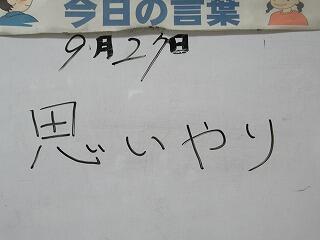 今日の言葉
9月27日
思いやり